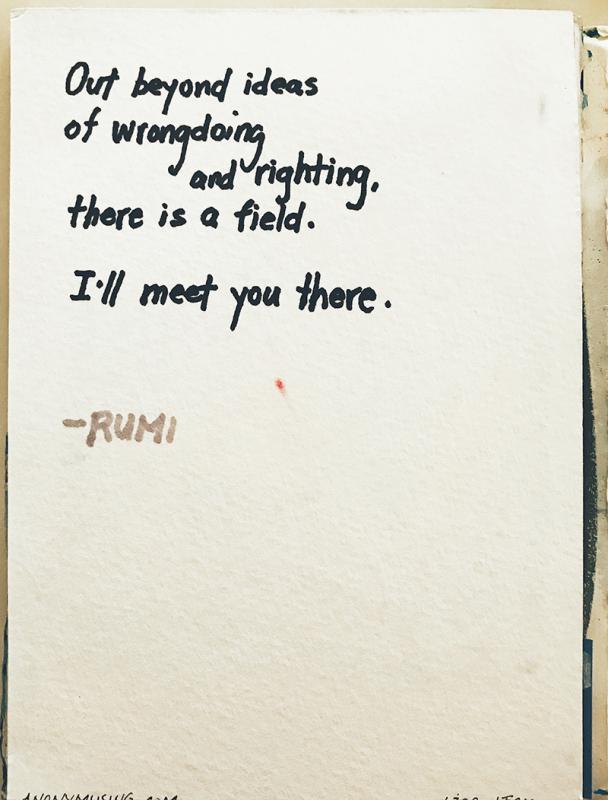 Out beyond ideas
of wrongdoing
and righting,
there is a field.
I'll meet you there.
-RUMI